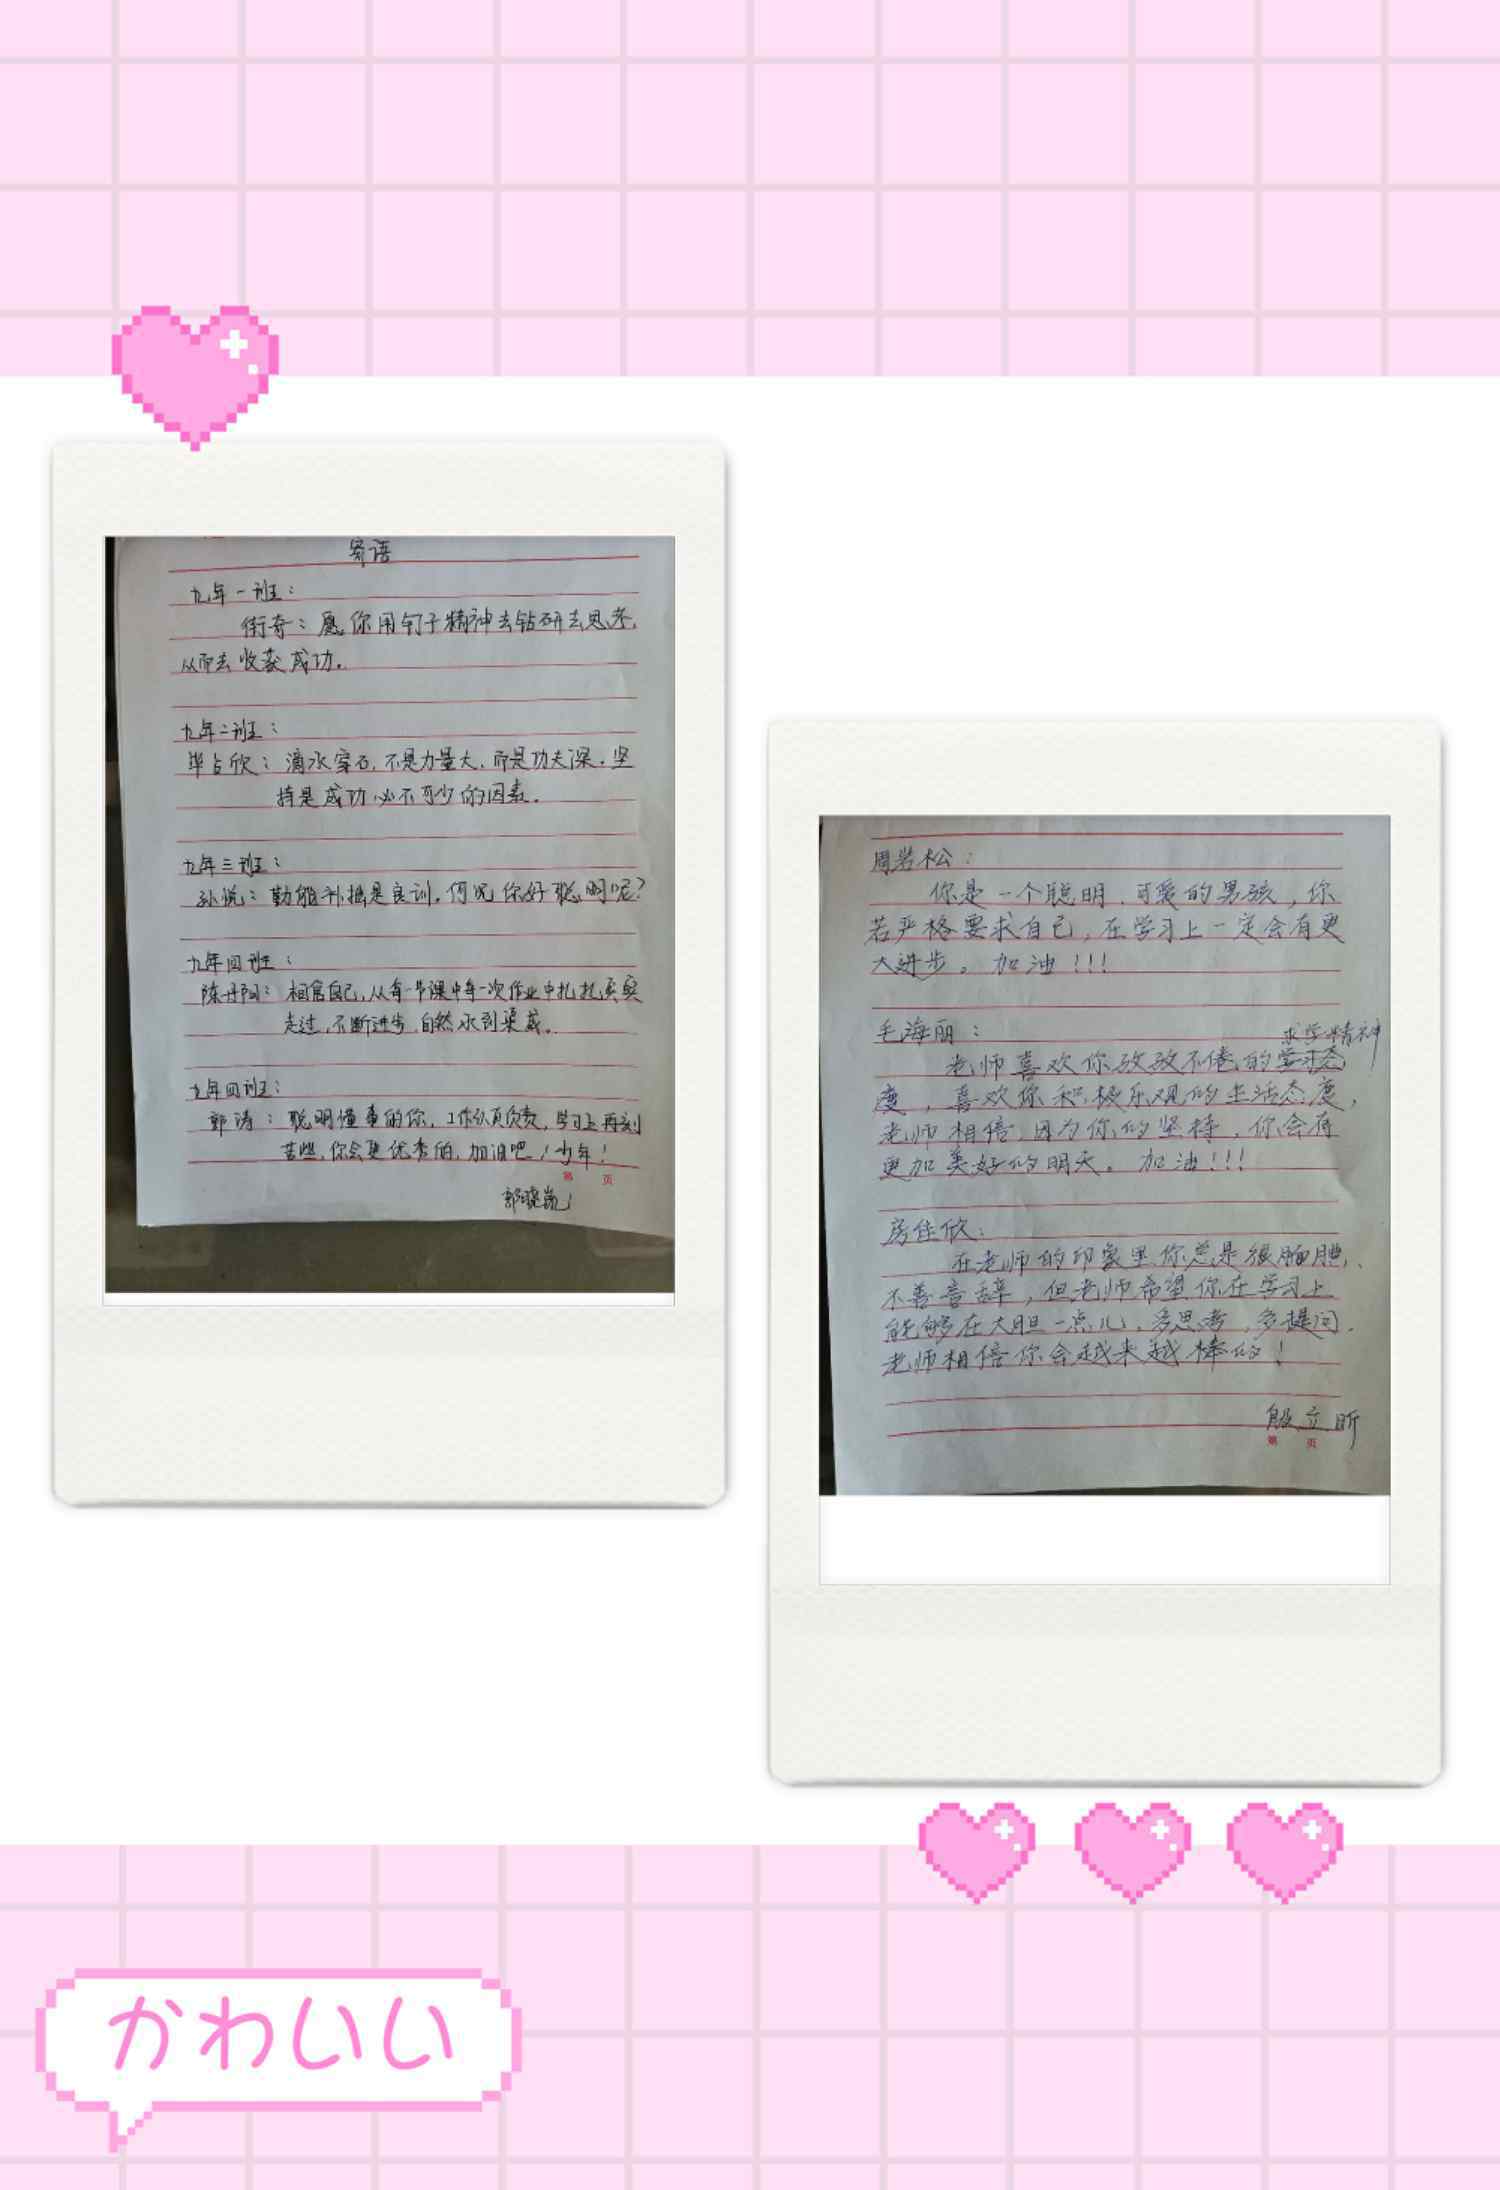 寄语
九年一班：
街奇：愿你用钉子精神去钻研去思考，
从而去收获成功。
九年二班：
毕占欣：滴水穿石，不是力量大，而是功夫深。坚
持是成功必不可少的因素。
九年三班：
孙悦：勤能补拙是良训，何况你好聪明呢？
九年四班：
陈丹阳：相信自己，从每一节课中每一次作业中扎扎实实
走过，不断进步，自然水到渠成。
九年四班：
郭涛：聪明懂事的你，工作认真负责，学习上再刻
苦些，你会更优秀的，加油吧！少年！
第 页
郭晓岚
周岩松：
你是一个聪明、可爱的男孩，你
若严格要求自己，在学习上一定会有更
大进步。加油!!!
毛海丽：
求学精神
老师喜欢你孜孜不倦的学习态
度，喜欢你积极乐观的生活态度，
老师相信，因为你的坚持，你会有
更加美好的明天。加油!!!
房佳欣：
在老师的印象里你总是很腼腆、
不善言辞，但老师希望你在学习上
能够在大胆一点儿，多思考，多提问，
老师相信你会越来越棒的！
殷立昕
第 页
かわいい